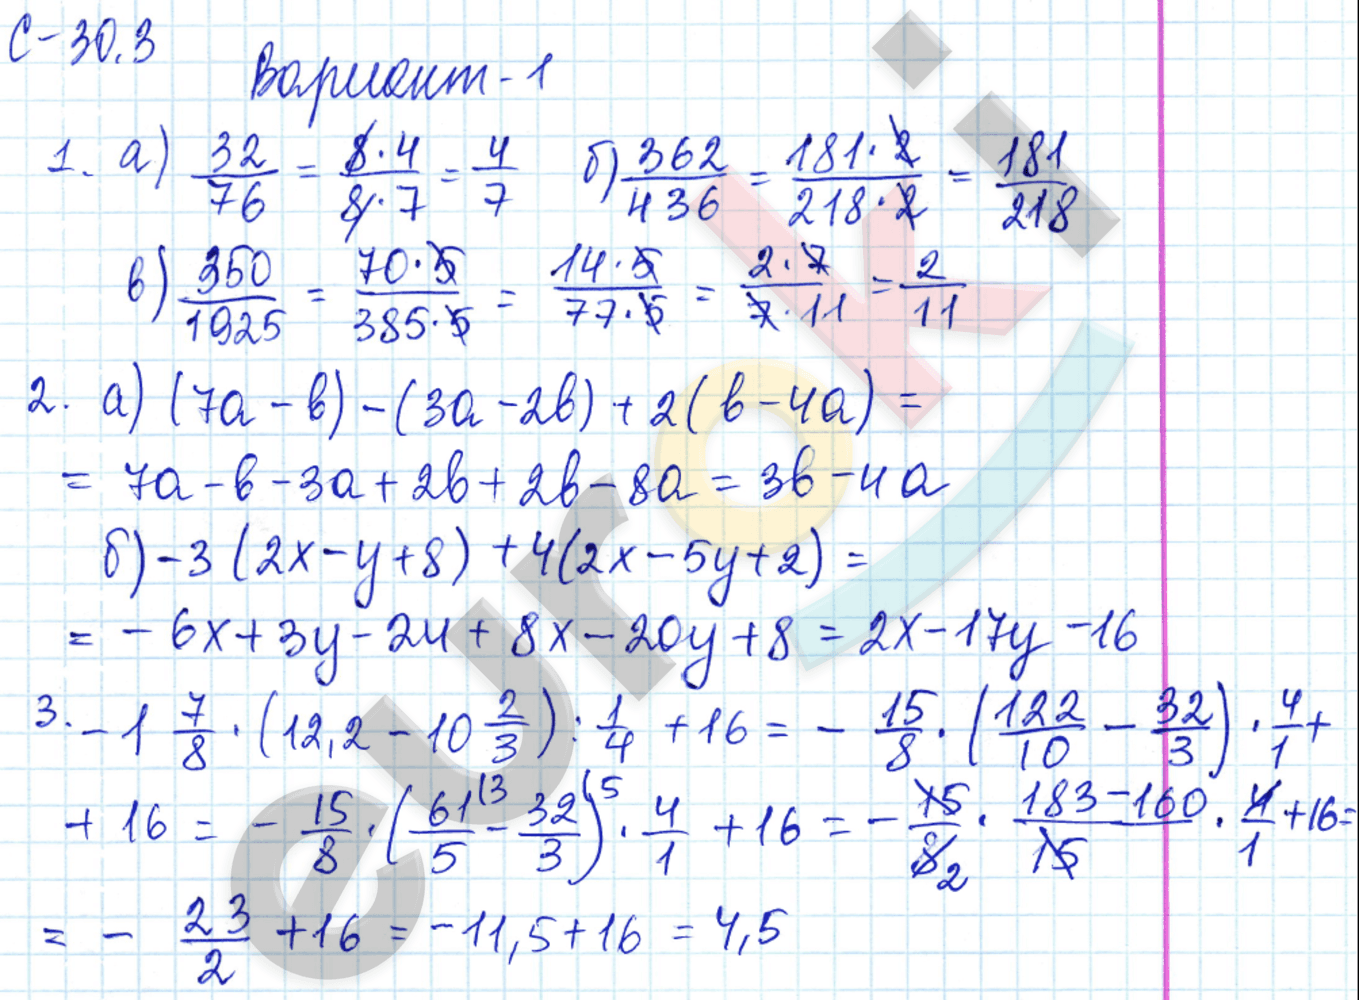 С-30.3
Вариант-1
1. а) 32/76 = 8·4/8·7 = 4/7 б) 362/436 = 181·2/218·2 = 181/218
в) 350/1925 = 70·5/385·5 = 14·5/77·5 = 2·7/7·11 = 2/11
2. а) (7a - b) - (3a - 2b) + 2(b - 4a) =
= 7a - b - 3a + 2b + 2b - 8a = 3b - 4a
б) -3(2x - y + 8) + 4(2x - 5y + 2) =
= -6x + 3y - 24 + 8x - 20y + 8 = 2x - 17y - 16
3. -1 7/8 · (12,2 - 10 2/3) : 1/4 + 16 = - 15/8 · (122/10 - 32/3) · 4/1 +
+ 16 = - 15/8 · (61/5 (3 - 32/3 (5) · 4/1 + 16 = - 15/8 2 · 183-160/15 · 4/1 + 16 =
= - 23/2 + 16 = -11,5 + 16 = 4,5
euroki